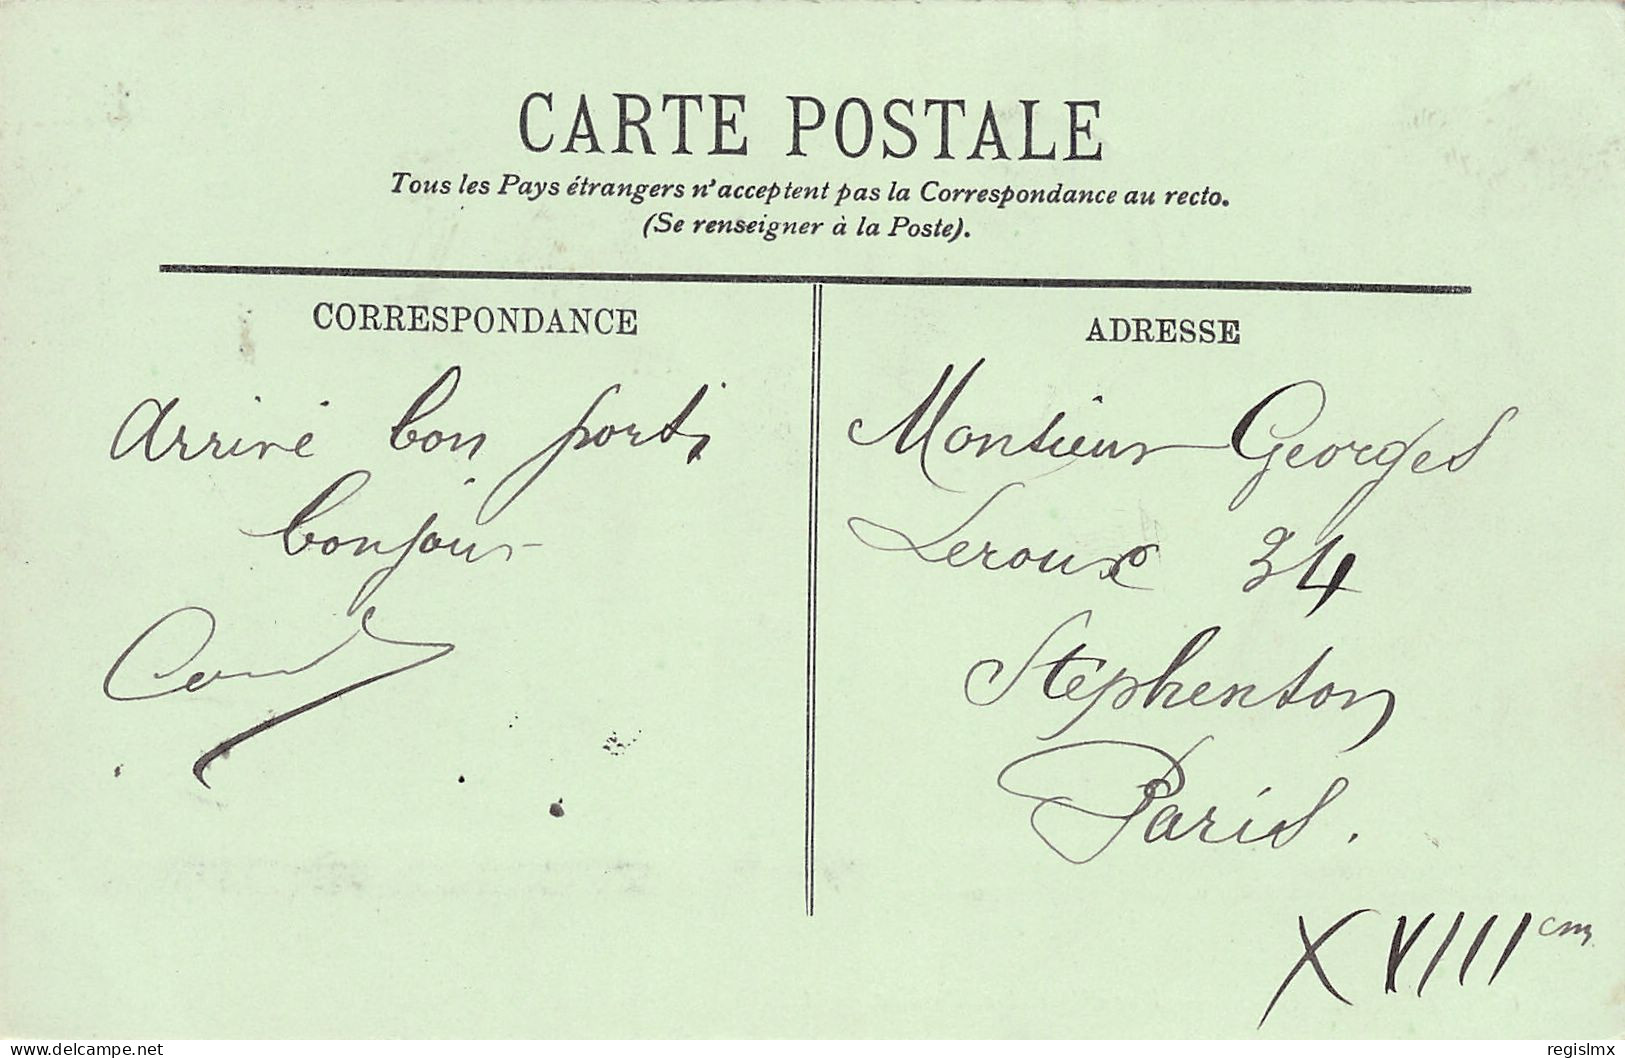 CARTE POSTALE
Tous les Pays étrangers n'acceptent pas la Correspondance au recto.
(Se renseigner à la Poste).
CORRESPONDANCE
Arrivé bon port,
bonjour
ADRESSE
Monsieur Georges
Leroux 34
Stephenson
Paris.
XVIIIem
www.delcampe.net
regislmx